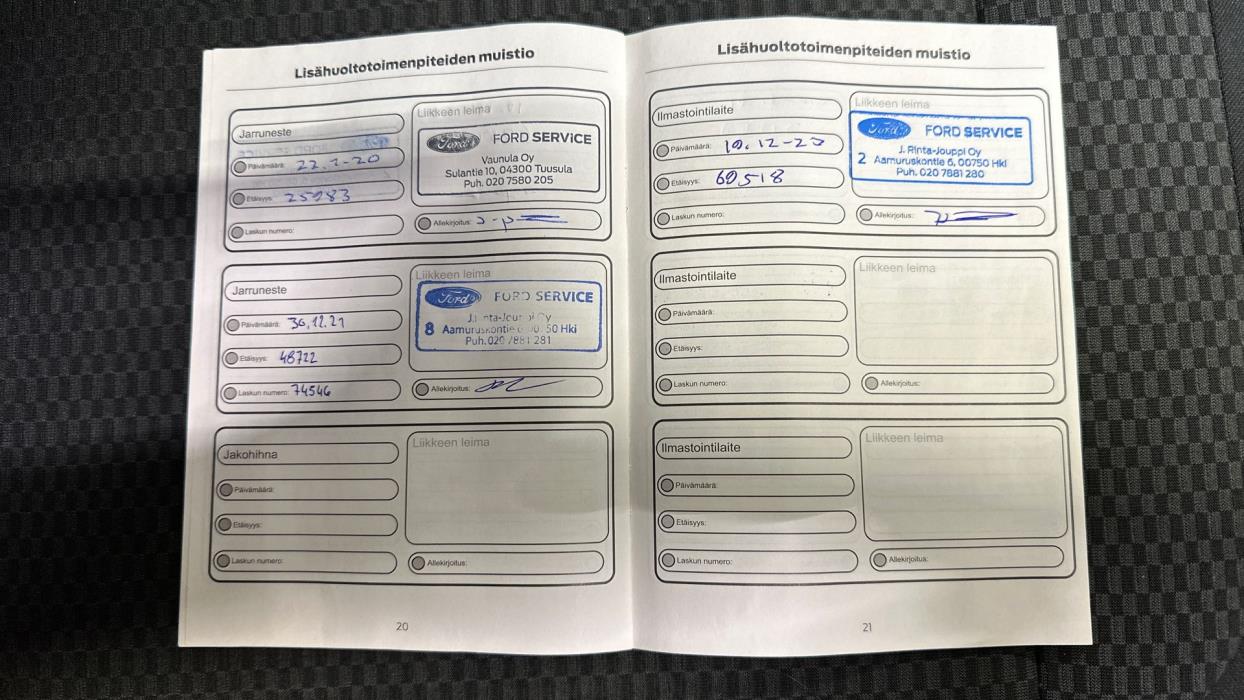 Lisähuoltotoimenpiteiden muistio
Jarruneste
Päivämäärä: 22.1-20
Etäisyys: 25983
Laskun numero:
Liikkeen leima
Ford FORD SERVICE
Vaunula Oy
Sulantie 10, 04300 Tuusula
Puh. 020 7580 205
Allekirjoitus:
Jarruneste
Päivämäärä: 30.12.21
Etäisyys: 48722
Laskun numero: 74546
Liikkeen leima
Ford FORD SERVICE
8 Aamuruskontie 50 Hki
Puh. 020 7881 281
Allekirjoitus:
Jakohihna
Päivämäärä:
Etäisyys:
Laskun numero:
Liikkeen leima
Allekirjoitus:
20
Lisähuoltotoimenpiteiden muistio
Ilmastointilaite
Päivämäärä: 19.12-23
Etäisyys: 69518
Laskun numero:
Liikkeen leima
Ford FORD SERVICE
J. Rinta-Jouppi Oy
2 Aamuruskontie 6, 00750 Hki
Puh. 020 7881 280
Allekirjoitus:
Ilmastointilaite
Päivämäärä:
Etäisyys:
Laskun numero:
Liikkeen leima
Allekirjoitus:
Ilmastointilaite
Päivämäärä:
Etäisyys:
Laskun numero:
Liikkeen leima
Allekirjoitus:
21